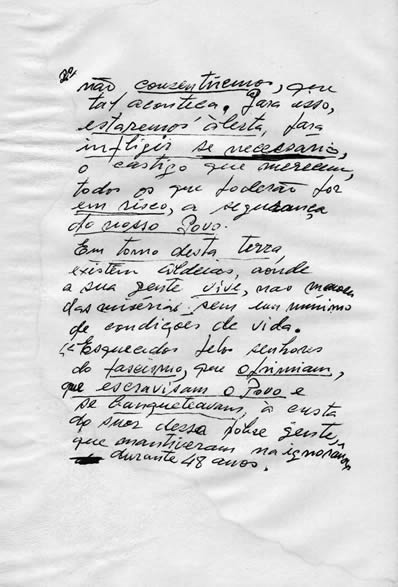 2º
não consentiremos, que
tal aconteça. Para isso,
estaremos álerta, para
infligir se necessário,
o castigo que merecem,
todos os que poderão pôr
em risco, a segurança
do nosso Povo.
Em torno desta terra,
existem aldeias, aonde
a sua gente vive, nas
das misérias, sem um mínimo
de condições de vida.
Esquecidos pelos senhores
do fascismo, que oprimiam,
que escravisam o Povo e
se banqueteavam, à custa
do suor dessa pobre gente,
que mantiveram na ignorância
durante 48 anos.